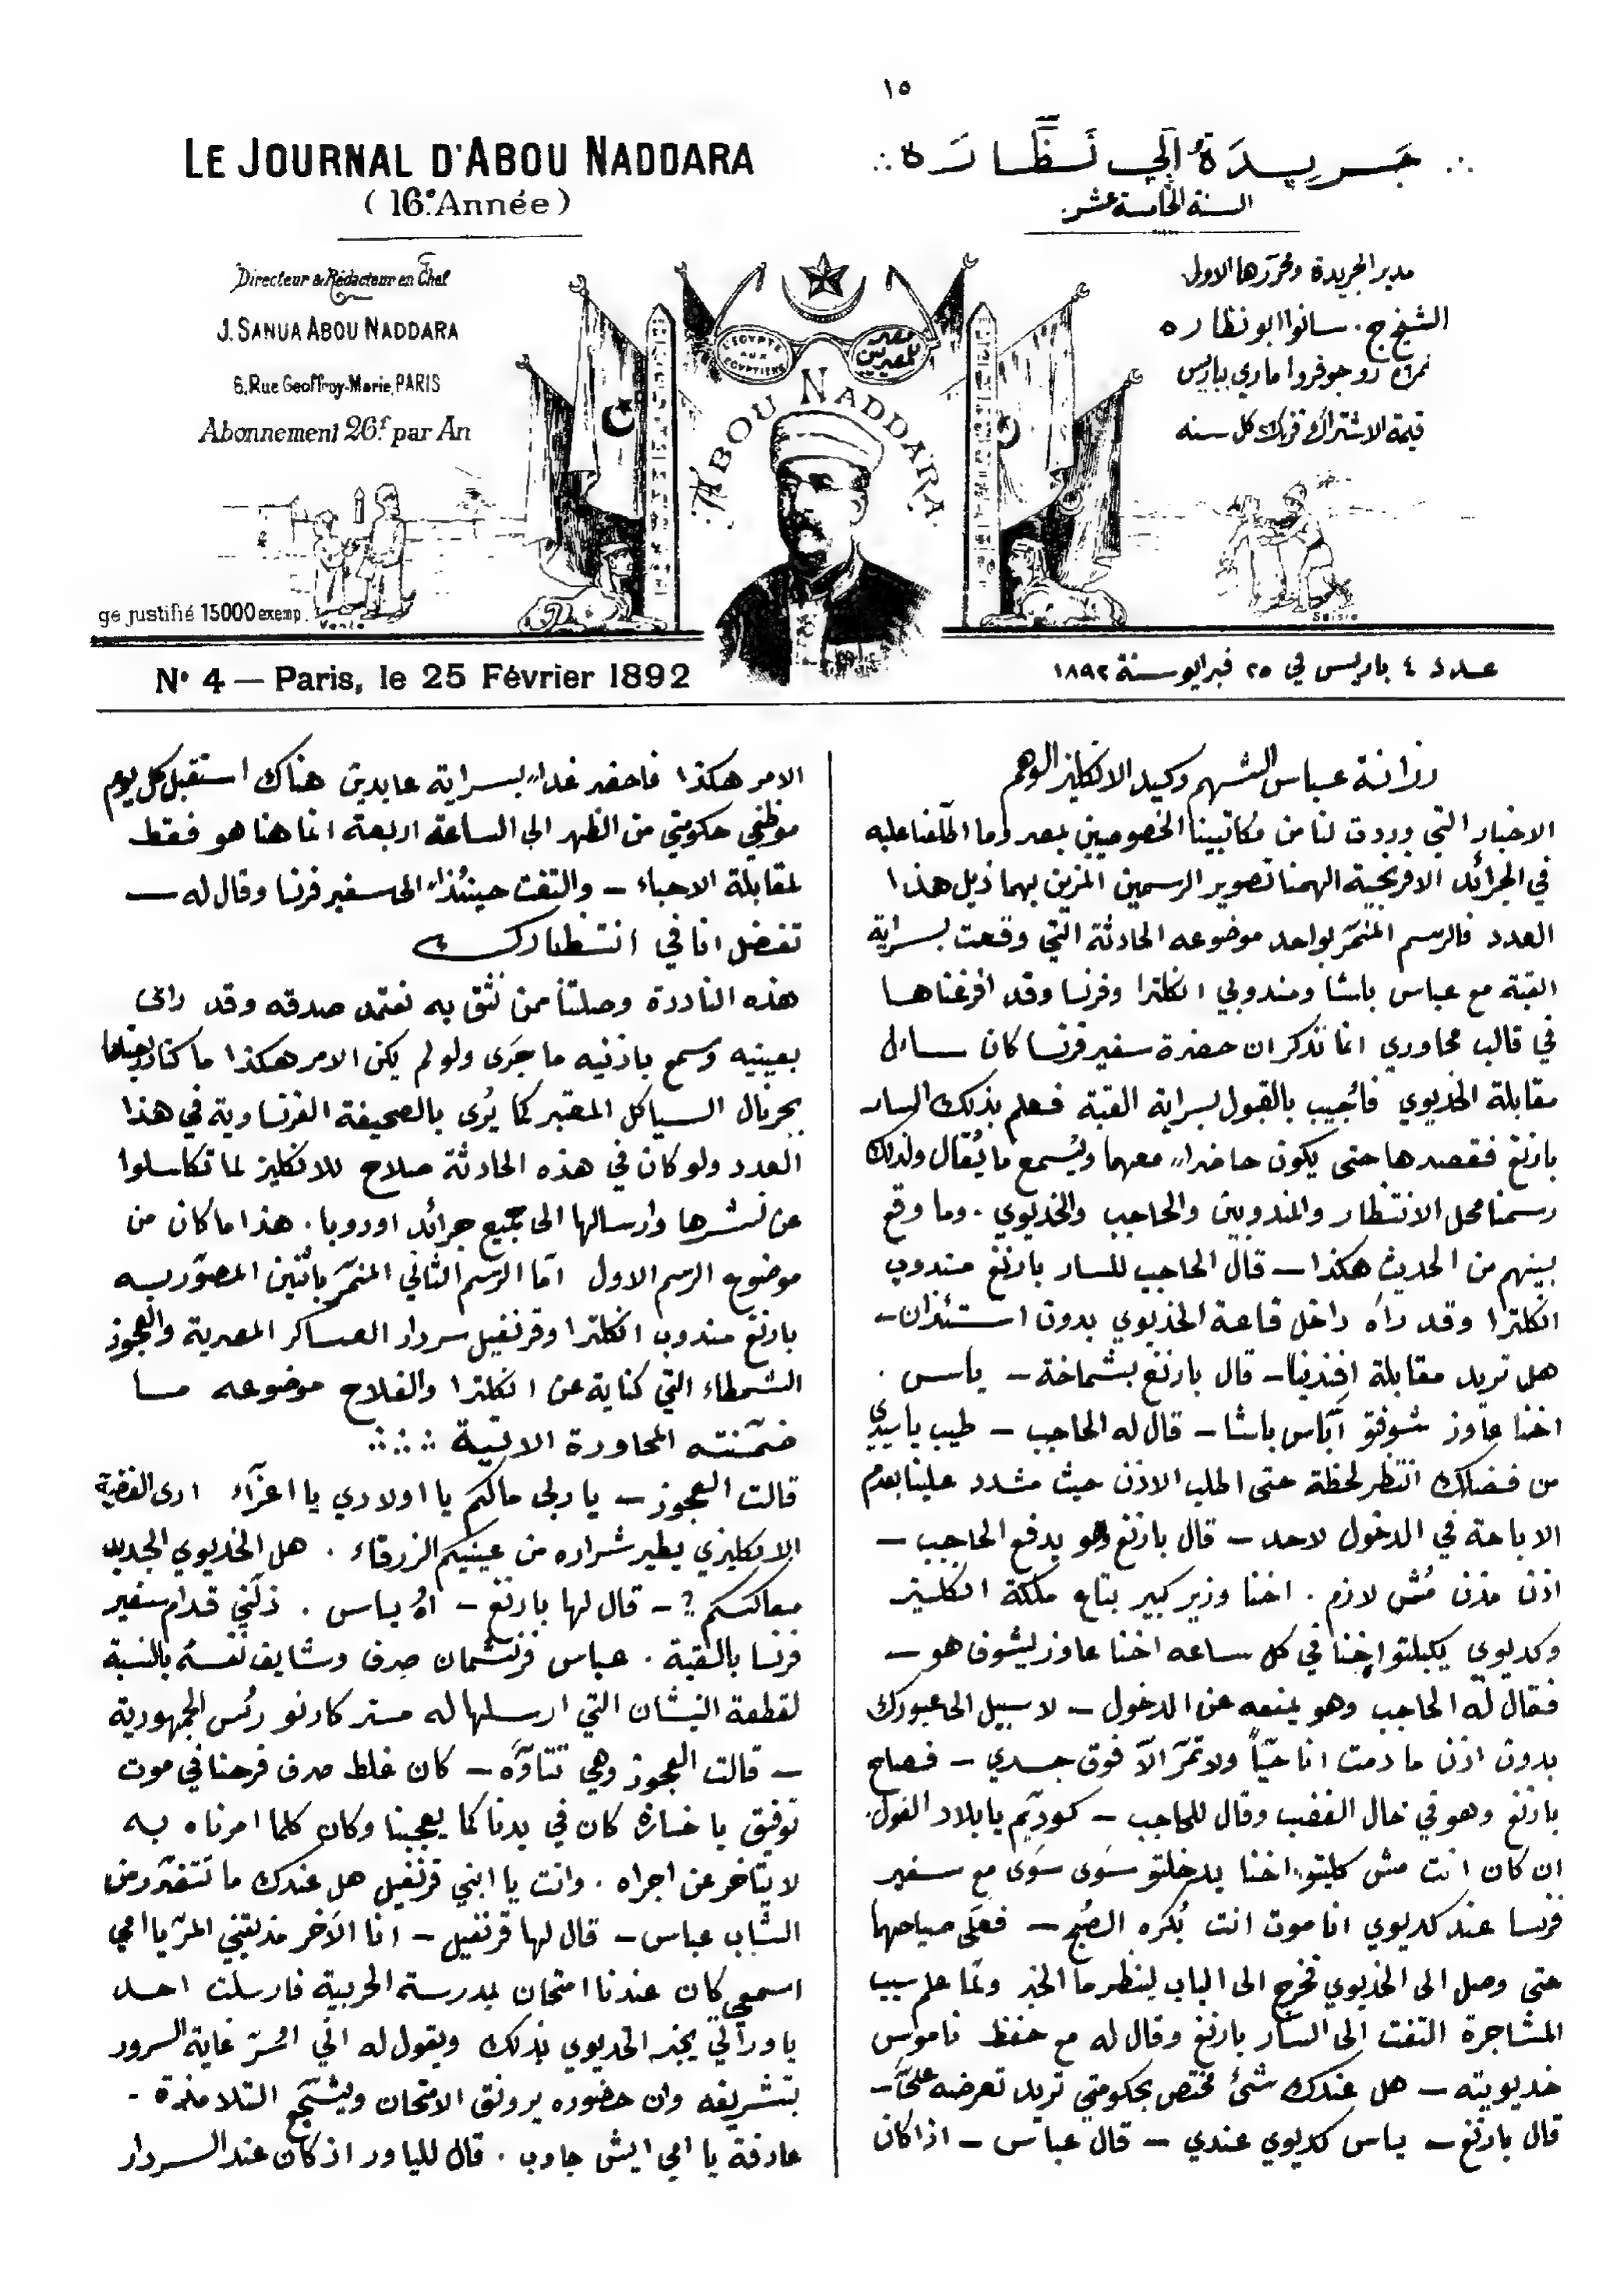 ١٥
LE JOURNAL D'ABOU NADDARA
(16e Année)
جَريدَةُ أبي نَظَّارَة
السنة الخامسة عشر
Directeur & Rédacteur en Chef
J. SANUA ABOU NADDARA
6, Rue Geoffroy-Marie, PARIS
Abonnement 26f. par An
مدير الجريدة ومحررها الاول
الشيخ ج. سانوا ابو نظاره
نمرة ٦ رو جوفروا ماري بباريس
قيمة الاشتراك فرنك كل سنه
L'EGYPTE AUX EGYPTIENS
مصر للمصريين
ABOU NADDARA
ge justifié 15000 exemp.
Vente
Saisie
No 4 — Paris, le 25 Février 1892
عدد ٤ باريس في ٢٥ فبرايو سنة ١٨٩٢
رزانة عباس الشهم وكيد الانكليز الوهم
الاخبار التي وردت لنا من مكاتبينا الخصوصيين بمصر وما اطلعنا عليه
في الجرائد الافرنجية الهمنا تصوير الرسمين المزين بهما ذيل هذا
العدد فالرسم المنمّر بواحد موضوعه الحادثة التي وقعت بسراية
القبة مع عباس باشا ومندوبي انكلترا وفرنسا وقد افرغناها
في قالب محاوري انما نذكر ان حضرة سفير فرنسا كان سائل
مقابلة الخديوي فأُجيب بالقبول بسراية القبة فعلم بذلك السار
بارنغ فقصدها حتى يكون حاضراً معهما ويُسمع ما يُقال ولذلك
رسمنا محل الانتظار والمندوبين والحاجب والخديوي . وما وقع
بينهم من الحديث هكذا – قال الحاجب للسار بارنغ مندوب
انكلترا وقد راه داخل قاعة الخديوي بدون استئذان –
هل تريد مقابلة افندينا – قال بارنغ بشماخة – ياس .
اخنا عاوز شوفتو أبّاس باشا – قال له الحاجب – طيب ياسيدي
من فضلك انتظر لحظة حتى اطلب الاذن حيث مشدد علينا بعدم
الاباحة في الدخول لاحد – قال بارنغ وهو يدفع الحاجب –
اذن مذن مُش لازم . اخنا وزير كبير بتاع ملكة انكليز
وكديوي يكبلتو اخنا في كل ساعه اخنا عاوز ليشوف هو –
فقال له الحاجب وهو يمنعه عن الدخول – لا سبيل الى عبورك
بدون اذن ما دمت انا حيّاً ولا تمرّ الاّ فوق جسدي – فصاح
بارنغ وهو في حال الغضب وقال للحاجب – كوديّم يا بلاد الفول .
ان كان انت مش كليتو اخنا يدخلتو سَوى سَوى مع سفير
فرنسا عند كديوي انا موت انت بُكره الصُبح – فعلَى صياحهما
حتى وصل الى الخديوي فخرج الى الباب لينظر ما الخبر ولمّا علم سبب
المشاجرة التفت الى السار بارنغ وقال له مع حفظ ناموس
خديويته – هل عندك شئ مختص بحكومتي تريد تعرضه عليّ –
قال بارنغ – ياس كديوي عندي – قال عباس – اذا كان
الامر هكذا فاحضر غداً بسراية عابدين هناك استقبل كل يوم
موظفي حكومتي من الظهر الى الساعة اربعة انما هنا هو فقط
لمقابلة الاحباء – والتفت حينئذٍ الى سفير فرنسا وقال له –
تفضل انا في انتظارك
هذه النادرة وصلتنا ممن نثق به نعتمد صدقه وقد رائى
بعينيه وسمع باذنيه ما جرَى ولو لم يكن الامر هكذا ما كنا درجناها
بجرنال السياكل المعتبر كما يُرى بالصحيفة الفرنساوية في هذا
العدد ولو كان في هذه الحادثة صلاح للانكليز لما تكاسلوا
عن نشرها وارسالها الى جميع جرائد اوروبا . هذا ما كان من
موضوع الرسم الاول امّا الرسم الثاني المنمّر باثنين المصوّر به
بارنغ مندوب انكلترا وقرنفيل سردار العساكر المصرية والعجوز
الشمطاء التي كناية عن انكلترا والفلاح موضوعه ما
ضمّنته المحاورة الاتية
قالت العجوز – يا ربي مالكم يا اولادي يا اعزّاء ارى الغضب
الانكليزي يطير شراره من عينيكم الزرقاء . هل الخديوي الجديد
معاكسكم ? – قال لها بارنغ – أهُ ياس . ذلّني قدام سفير
فرنسا بالقبة . عباس فرنشمان صِرف وشايف نفسهُ بالنسبة
لقطعة النيشان التي ارسلها له مستر كارنو رئس الجمهورية
– قالت العجوز وهي تتأوَّه – كان غلط صرف فرحنا في موت
توفيق يا خسارة كان في يدنا كما يعجبنا وكان كلما امرناه به
لا يتأخر عن اجراه . وانت يا ابني قرنفيل هل عندك ما تتضرر من
الشاب عباس – قال لها قرنفيل – انا الآخر مذيقني المرّ يا امي
اسمعي كان عندنا امتحان بمدرسة الحربية فارسلت احد
ياوراتي يخبر الخديوي بذلك ويقول له انّي اُسرّ غاية السرور
بتشريفه وان حضوره يرونق الامتحان ويشجّع التلامذة -
عارفة يا امي ايش جاوب . قال للياور اذ كان عند السردار